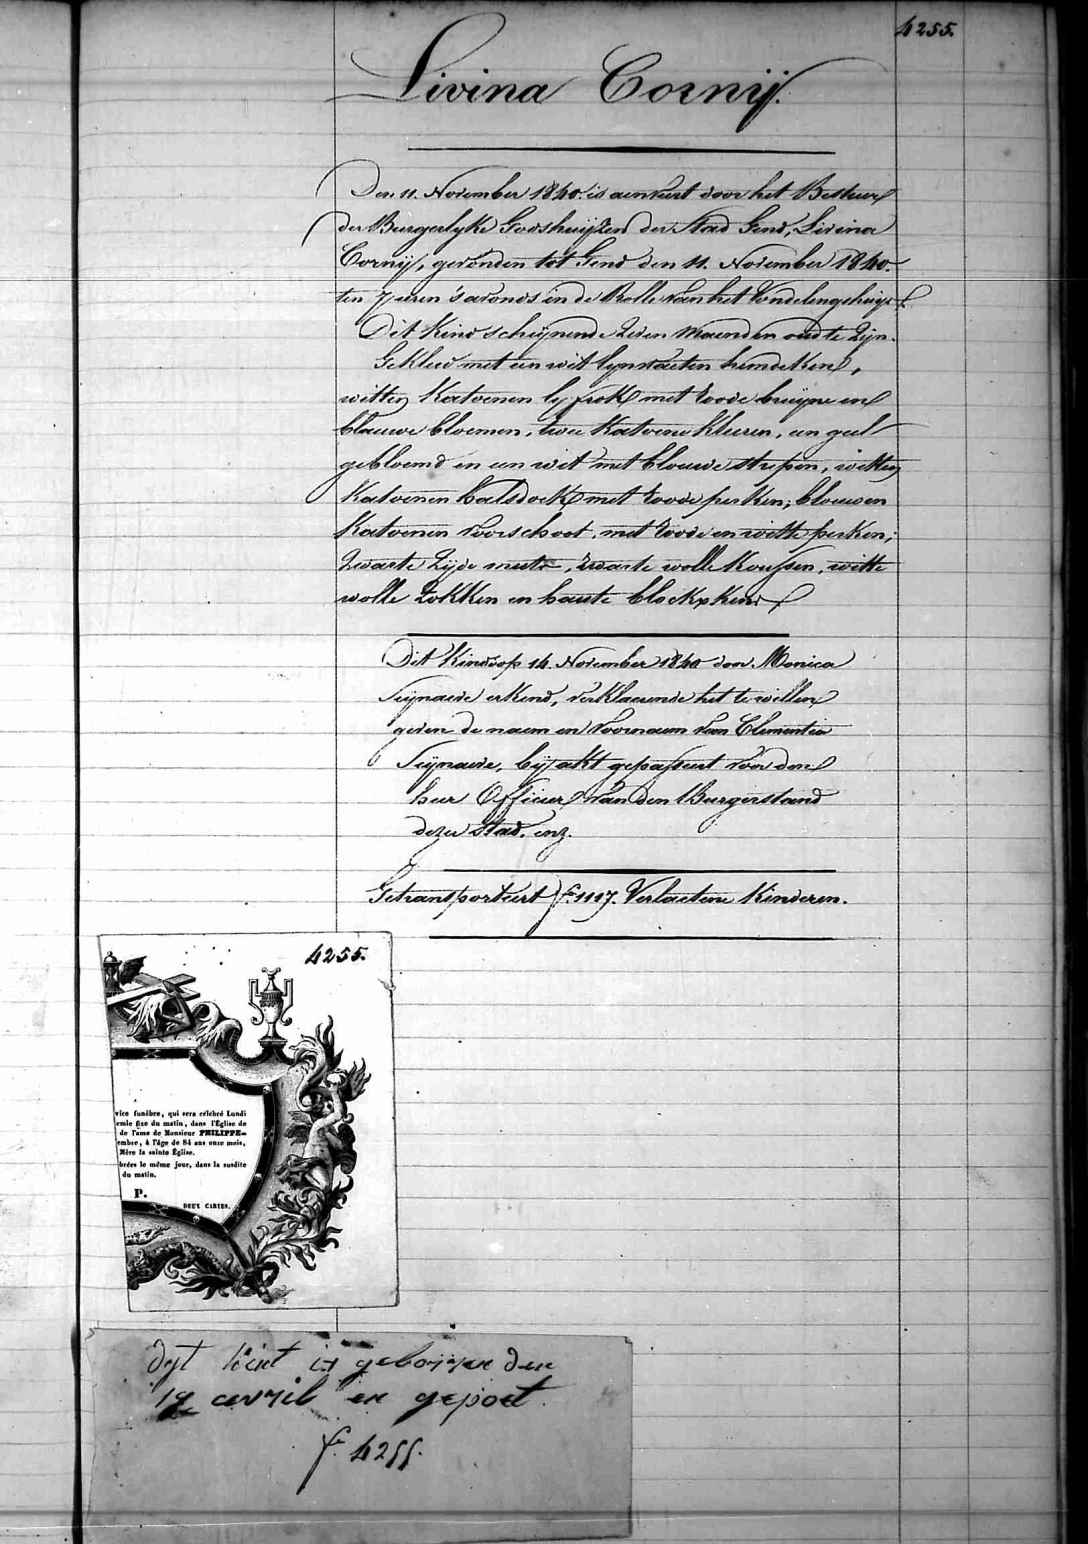 4255.
Livina Cornij.
Den 11. November 1840. is aenveert door het Bestuur
der Burgerlyke Godshuijzen der Stad Gend, Livina
Cornij, gevonden tot Gend den 11. November 1840.
ten 7 uren 's avonds in de Rolle van het Vondelingshuijs.
Dit Kind scheijnende zeven maenden oud te zijn.
Gekleed met een wit lynwaeten hemdeken,
witten Katoenen lyfrok met roode bruijne en
blauwe bloemen, twee Katoene kleeren, een geel
gebloemd en een wit met blouwe strepen, witten
Katoenen halsdoek met roode perken; blouwen
Katoenen voorschoot, met roode en witte perken;
Zwarte Zijde muts, zwarte wolle Koussen, witte
wolle Zokken en houte blockxkens
Dit Kind is op 14. November 1840 door Monica
Seijnaeve erkend, verklaerende het te willen
geven de naem en voornaem van Clementia
Seijnaeve, bij akt gepasseert voor den
heer Officier van den Burgerstand
dezer Stad. enz.
Getransporteert f° 1117. Verlaetene Kinderen.
4255.
vice funèbre, qui sera célébré Lundi
emie fixe du matin, dans l'Église de
de l'ame de Monsieur PHILIPPE-
embre, à l'âge de 84 ans onze mois,
Mère la sainte Église.
brées le même jour, dans la susdite
du matin.
P.
DEUX CARTES.
dyt kint is geboren den
19 avril en gepoet
f° 4255.